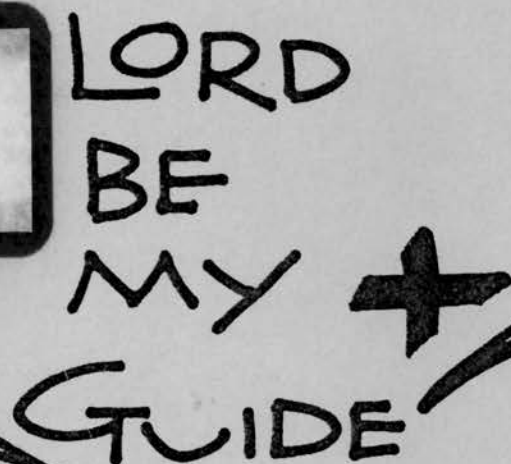 LORD
BE
MY
GUIDE